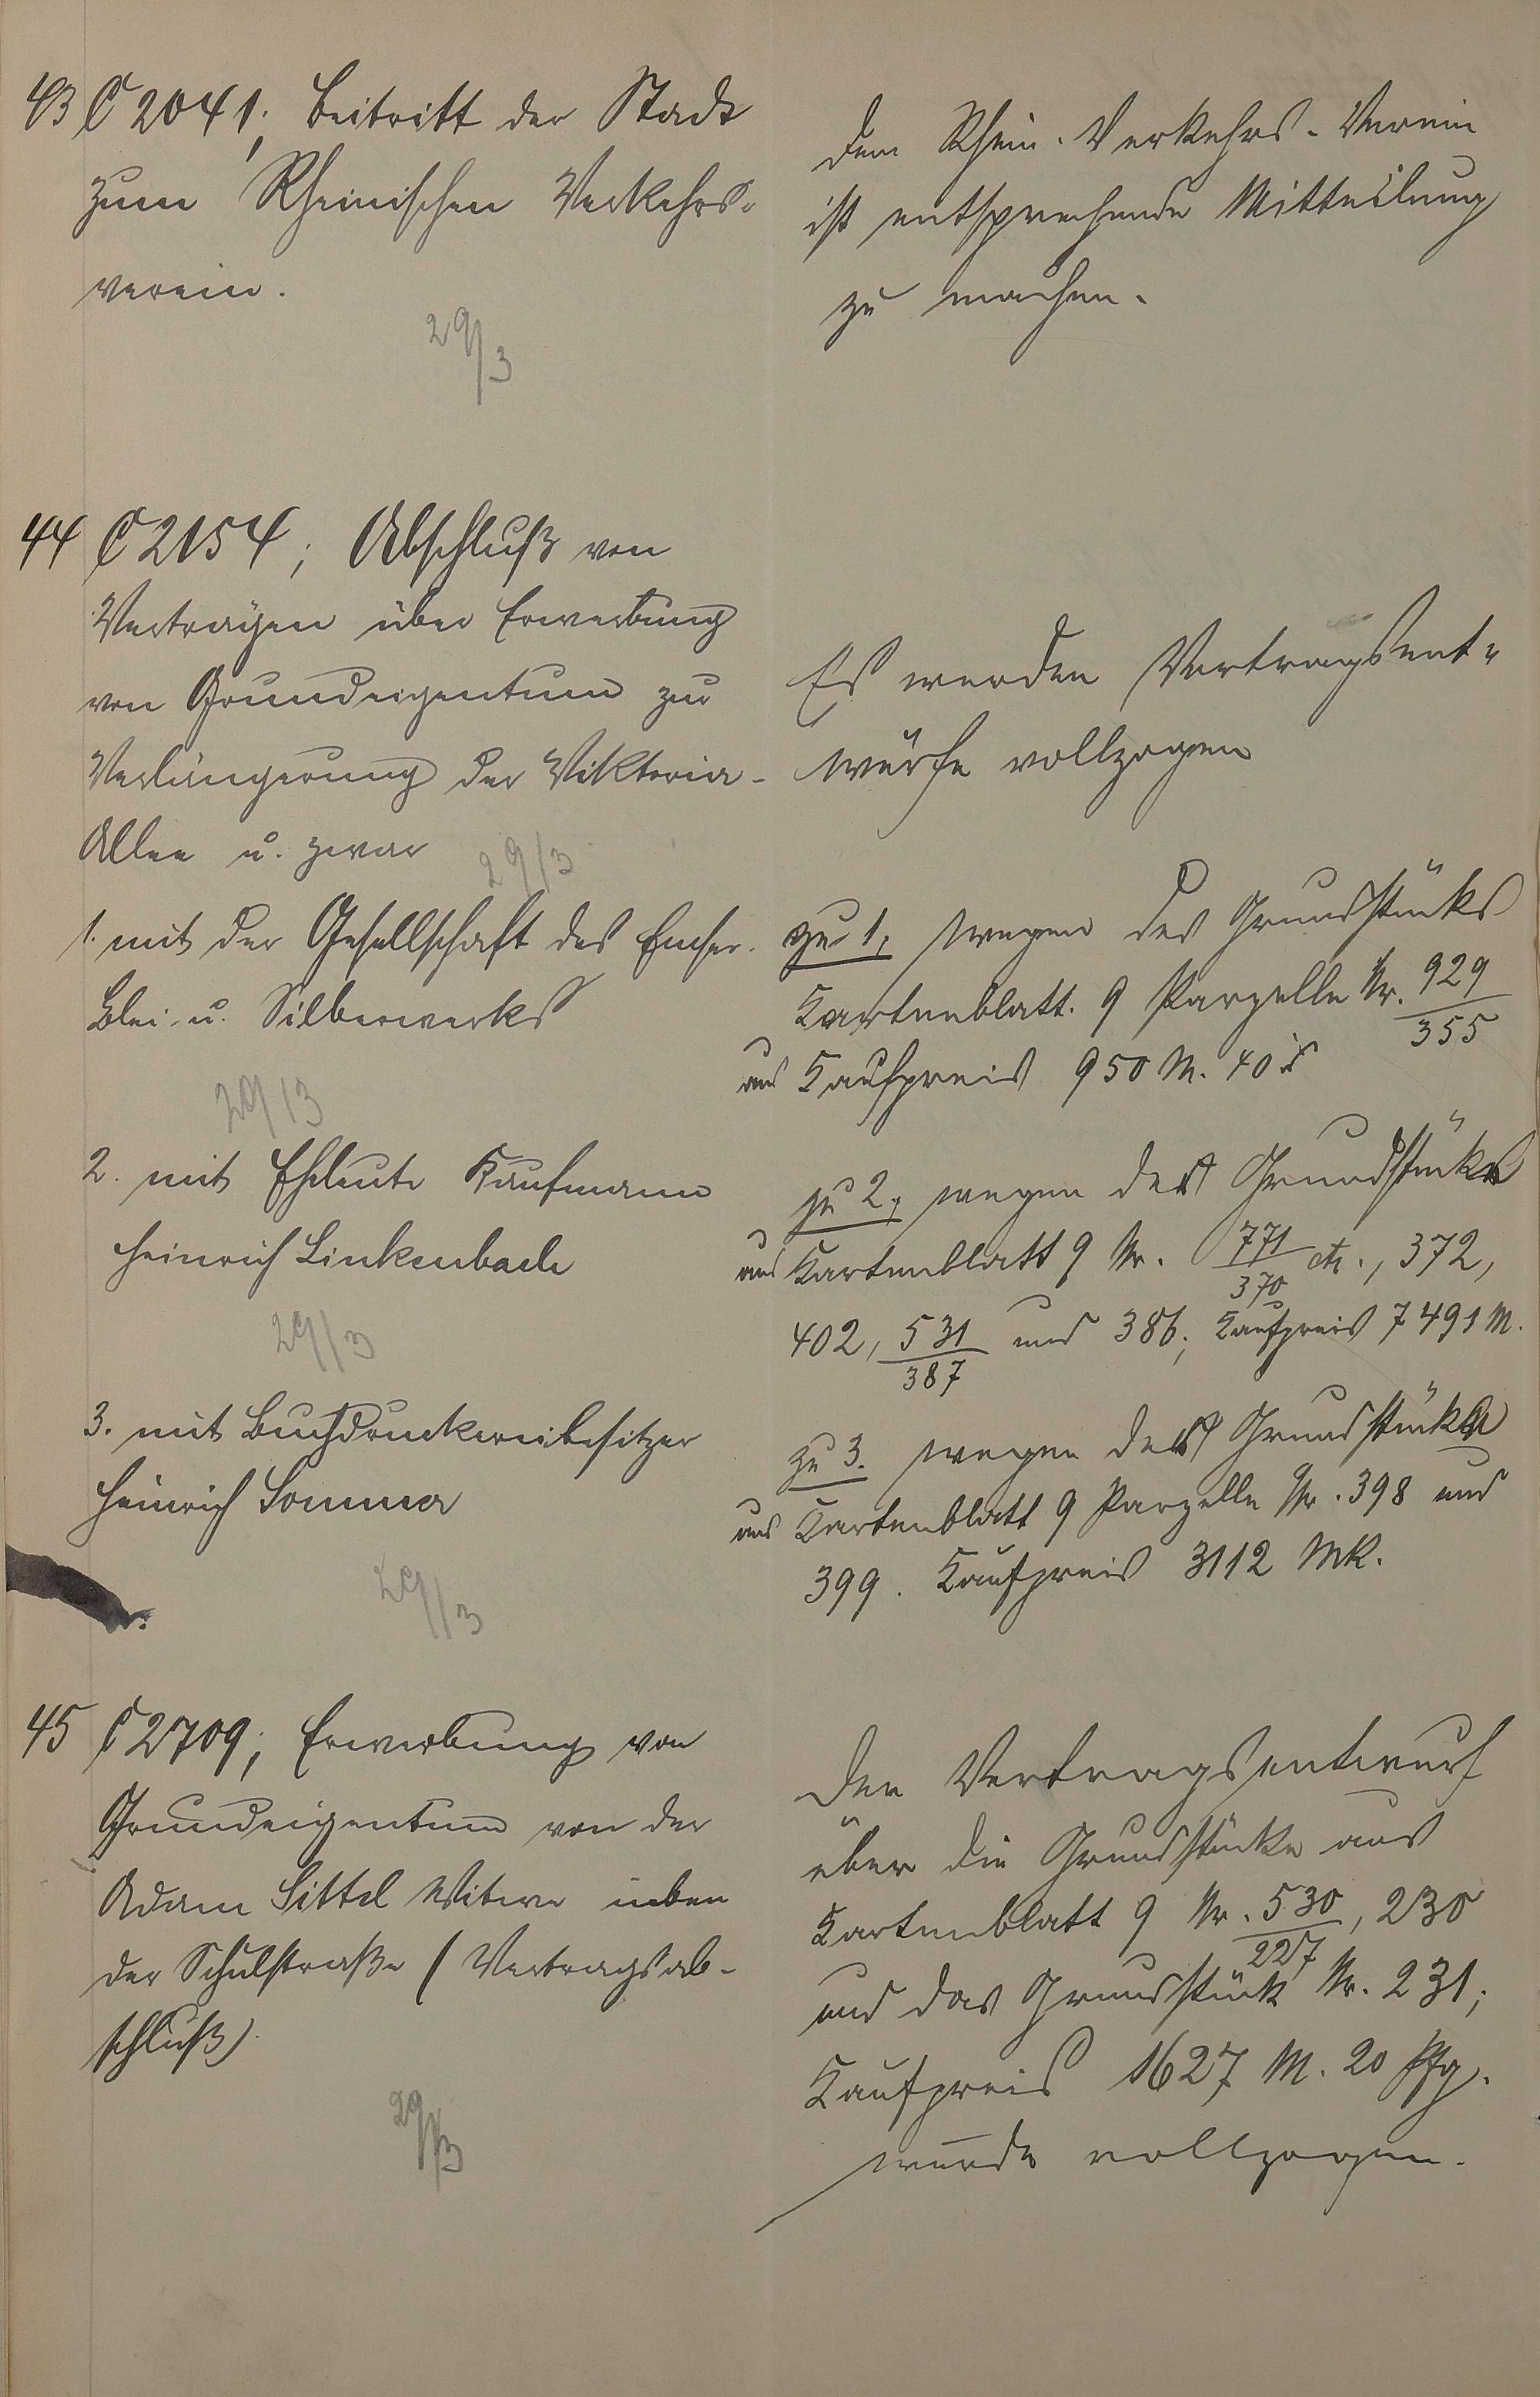 43 C 2041; Beitritt der Stadt
zum Rheinischen Verkehrs-
verein.
29/3
Dem Rhein. Verkehrs-Verein
ist entsprechende Mitteilung
zu machen.
44 C 2154; Abschluß von
Verträgen über Erwerbung
von Grundeigentum zur
Verlängerung der Viktoria-
Allee u. zwar
29/3
Es werden Vertragsent-
würfe vollzogen
1. mit der Gesellschaft des Emser-
Blei- u. Silberwerks
29/3
zu 1, wegen des Grundstücks
Kartenblatt 9 Parzelle Nr. 929/355
aus Kaufpreis 950 M. 40
2. mit Eheleute Kaufmann
Heinrich Linkenbach
29/3
zu 2, wegen der Grundstücke
aus Kartenblatt 9 Nr. 771/370 etc., 372,
402, 531/387 und 386; Kaufpreis 7491 M.
3. mit Buchdruckereibesitzer
Heinrich Sommer
29/3
zu 3. wegen der Grundstücke
aus Kartenblatt 9 Parzelle Nr. 398 und
399. Kaufpreis 3112 Mk.
45 C 2709; Erwerbung von
Grundeigentum von der
Adam Sittel Witwe
der Schulstraße (Vertragsab-
schluß).
29/3
Der Vertragsentwurf
über die Grundstücke aus
Kartenblatt 9 Nr. 530/227, 230
und das Grundstück Nr. 231;
Kaufpreis 1627 M. 20 Pfg.
wurde vollzogen.